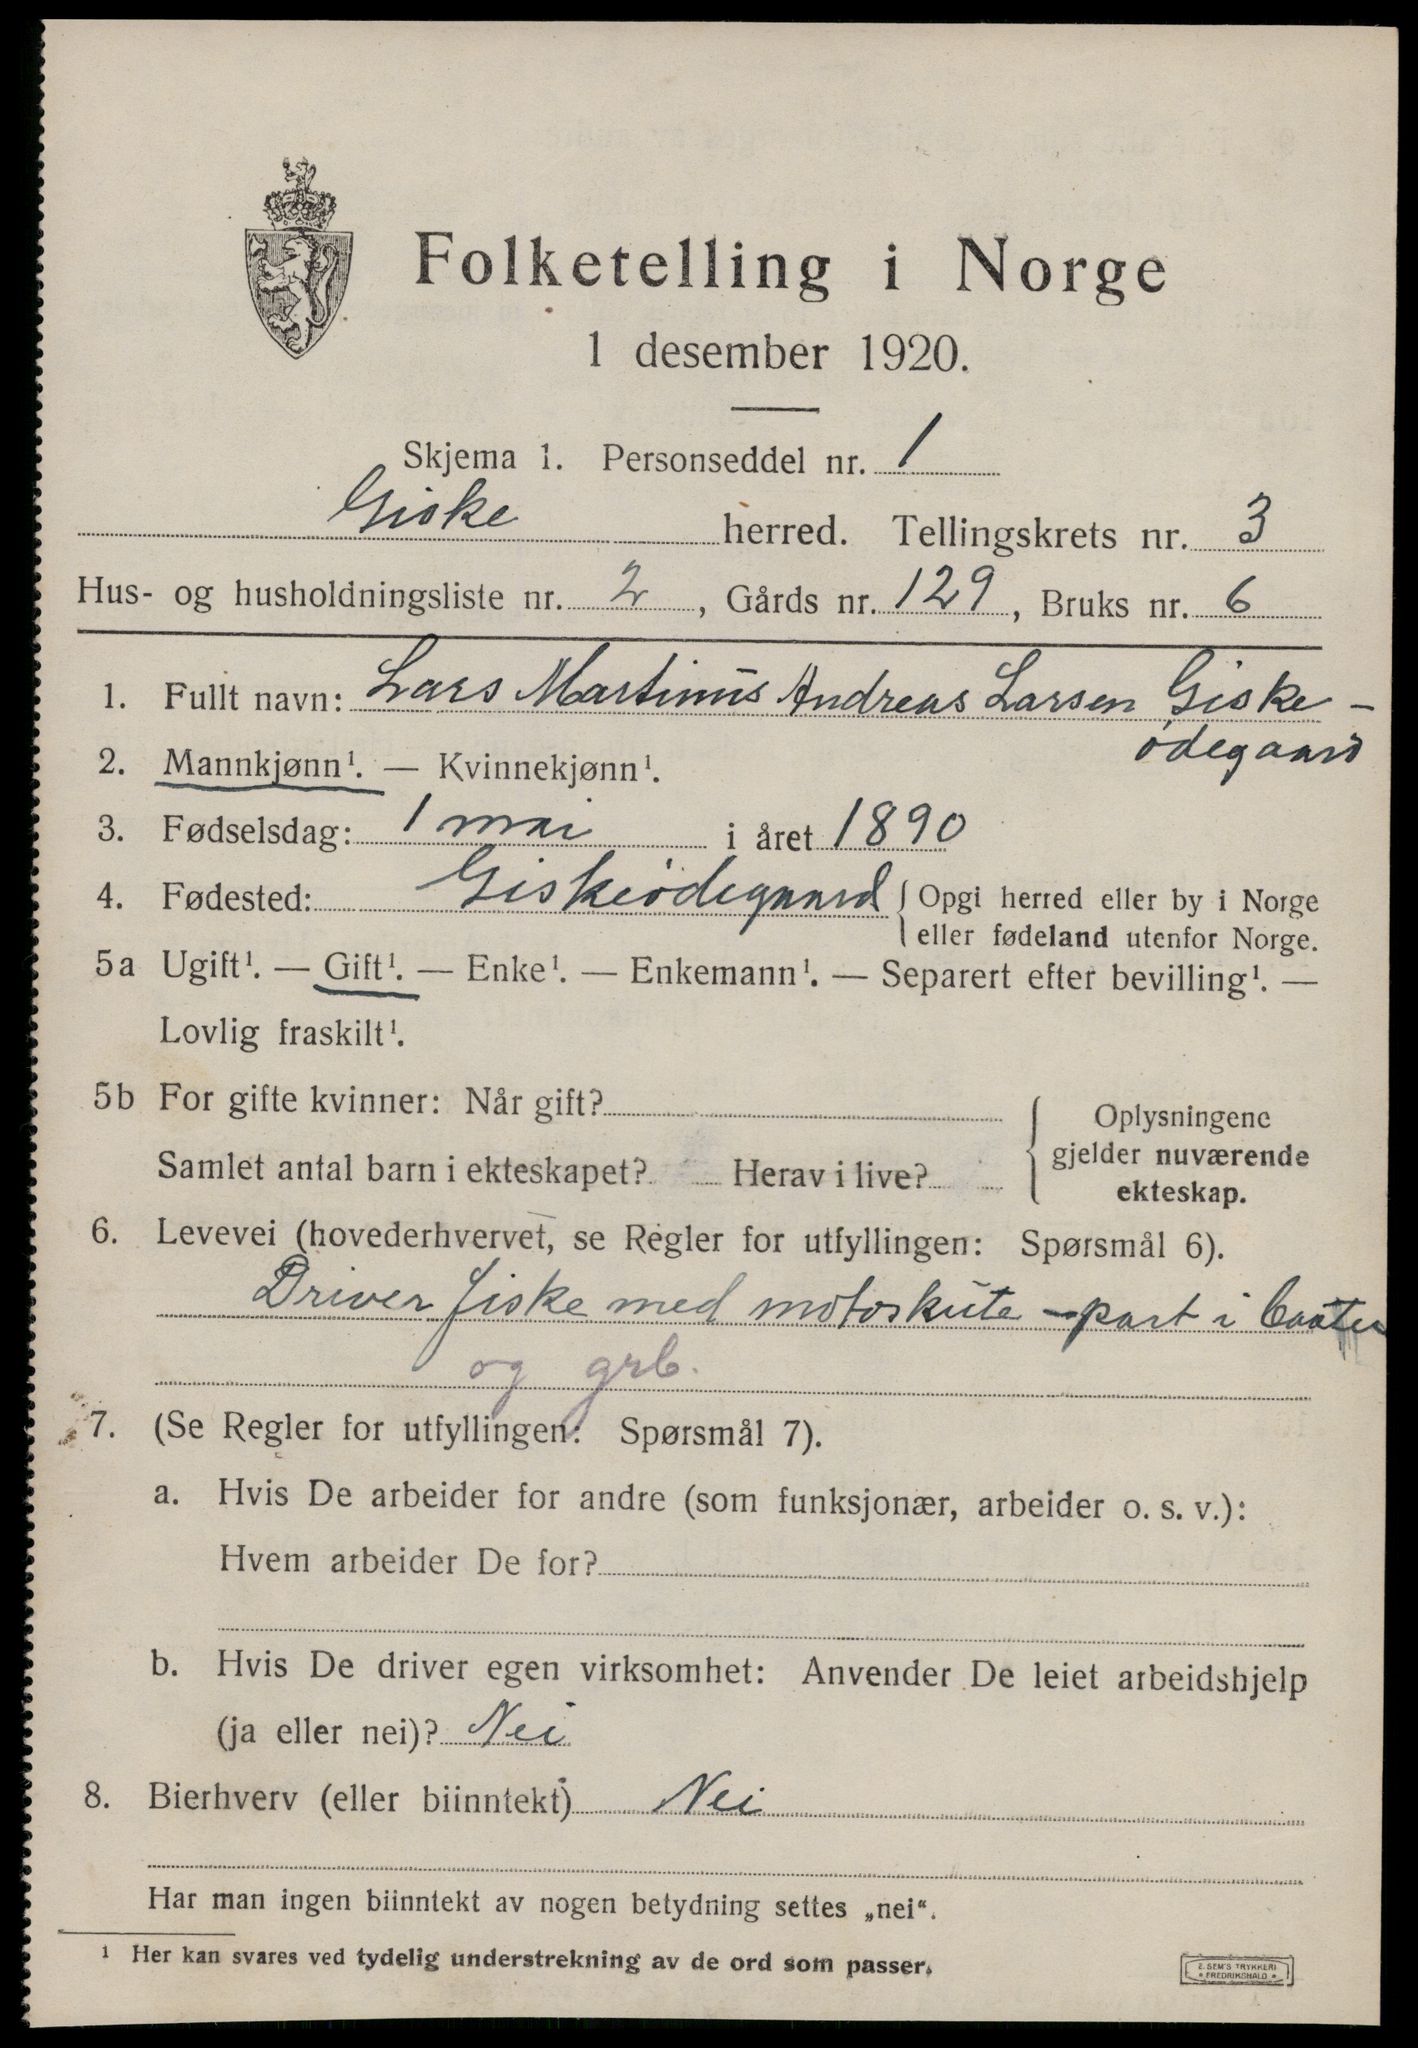 Folketelling i Norge
1 desember 1920.
Skjema 1. Personseddel nr. 1
Giske herred. Tellingskrets nr. 3
Hus- og husholdningsliste nr. 2, Gårds nr. 129, Bruks nr. 6
1. Fullt navn: Lars Martinus Andreas Larsen Giske-
ødegaard
2. Mannkjønn¹. — Kvinnekjønn¹.
3. Fødselsdag: 1 mai i året 1890
4. Fødested: Giskeødegaard { Opgi herred eller by i Norge
eller fødeland utenfor Norge.
5a Ugift¹. — Gift¹. — Enke¹. — Enkemann¹. — Separert efter bevilling¹. —
Lovlig fraskilt¹.
5b For gifte kvinner: Når gift? { Oplysningene
gjelder nuværende
Samlet antal barn i ekteskapet? Herav i live?
ekteskap.
6. Levevei (hovederhvervet, se Regler for utfyllingen: Spørsmål 6).
Driver fiske med motoskute - part i baaten
og grb.
7. (Se Regler for utfyllingen: Spørsmål 7).
a. Hvis De arbeider for andre (som funksjonær, arbeider o. s. v.):
Hvem arbeider De for?
b. Hvis De driver egen virksomhet: Anvender De leiet arbeidshjelp
(ja eller nei)? Nei
8. Bierhverv (eller biinntekt) Nei
Har man ingen biinntekt av nogen betydning settes „nei“.
¹ Her kan svares ved tydelig understrekning av de ord som passer.
E. SEM'S TRYKKERI
FREDRIKSHALD